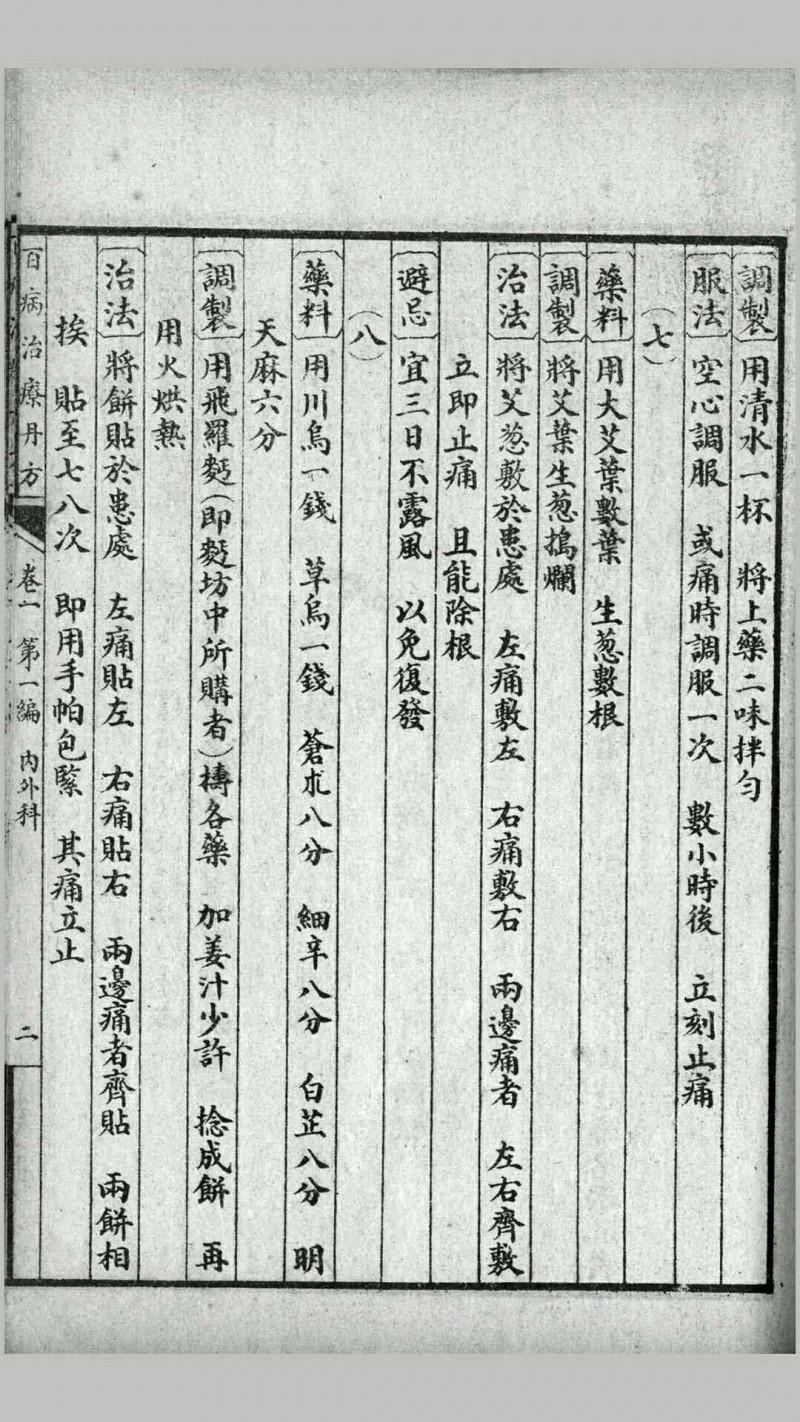 〔調製〕用清水一杯　將上藥二味拌勻
〔服法〕空心調服　或痛時調服一次　數小時後　立刻止痛
（七）
〔藥料〕用大艾葉數葉　生葱數根
〔調製〕將艾葉生葱搗爛
〔治法〕將艾葱敷於患處　左痛敷左　右痛敷右　兩邊痛者　左右齊敷
立即止痛　且能除根
〔避忌〕宜三日不露風　以免復發
（八）
〔藥料〕用川烏一錢　草烏一錢　蒼朮八分　細辛八分　白芷八分　明
天麻六分
〔調製〕用飛羅麪（即麪坊中所購者）擣各藥　加姜汁少許　捻成餅　再
用火烘熱
〔治法〕將餅貼於患處　左痛貼左　右痛貼右　兩邊痛者齊貼　兩餅相
挨　貼至七八次　即用手帕包緊　其痛立止
百病治療丹方　卷一　第一編　內外科　二